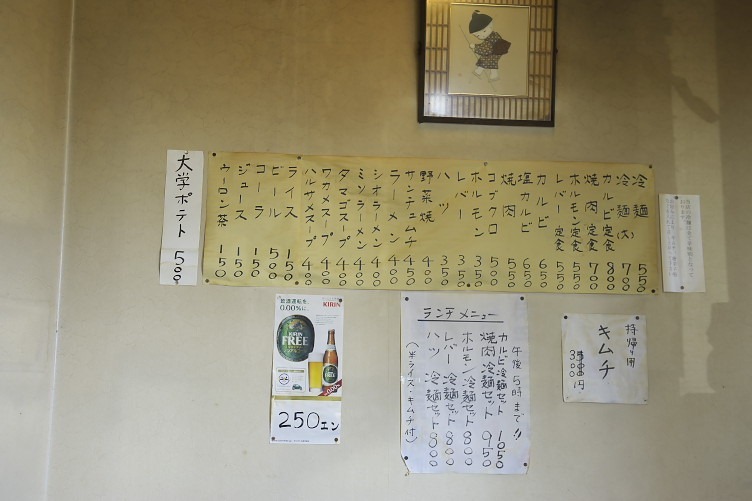 冷麺 550
冷麺(大) 700
カルビ定食 800
焼肉定食 700
ホルモン定食 550
レバー定食 550
カルビ 650
塩カルビ 650
焼肉 550
コブクロ 500
ホルモン 350
レバー 350
ハツ 350
野菜焼 400
サンチュムチ 450
ラーメン 400
シオラーメン 400
ミソラーメン 400
タマゴスープ 400
ワカメスープ 400
ハルサメスープ 400
ライス 150
ビール 500
コーラ 150
ジュース 150
ウーロン茶 150
大学ポテト 500
飲酒運転を、
0.00%に。
KIRIN
KIRIN
FREE
0.00%
250エン
ランチメニュー
午後5時まで!!
カルビ冷麺セット 1050
焼肉冷麺セット 950
ホルモン冷麺セット 800
レバー冷麺セット 800
ハツ冷麺セット 800
(半ライス・キムチ付)
持帰り用
キムチ
300円